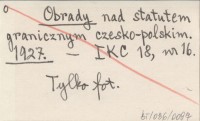 Obrady nad statutem
granicznym czesko-polskim.
1927. — IKC 18, nr 16.
Tylko fot.